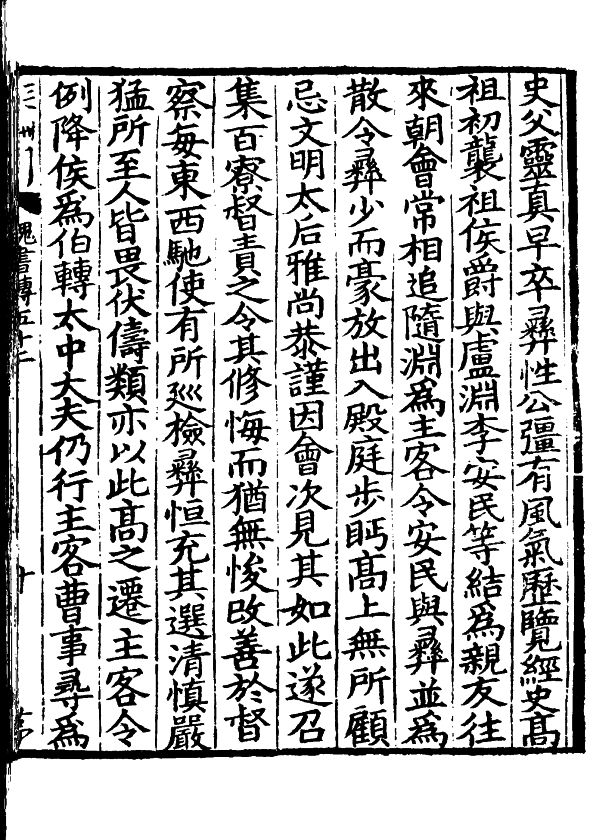 史父靈真早卒彞性公彊有風氣歷覽經史髙
祖初襲祖侯爵與盧淵李安民等結爲親友往
來朝會常相追隨淵爲主客令安民與彞並爲
散令彞少而豪放出入殿庭步眄髙上無所顧
忌文明太后雅尚恭謹因會次見其如此遂召
集百寮督責之令其修悔而猶無悛改善於督
察每東西馳使有所廵檢彞恒充其選清慎嚴
猛所至人皆畏伏儔類亦以此髙之遷主客令
例降侯爲伯轉太中大夫仍行主客曹事尋爲
魏書傳五十二
十